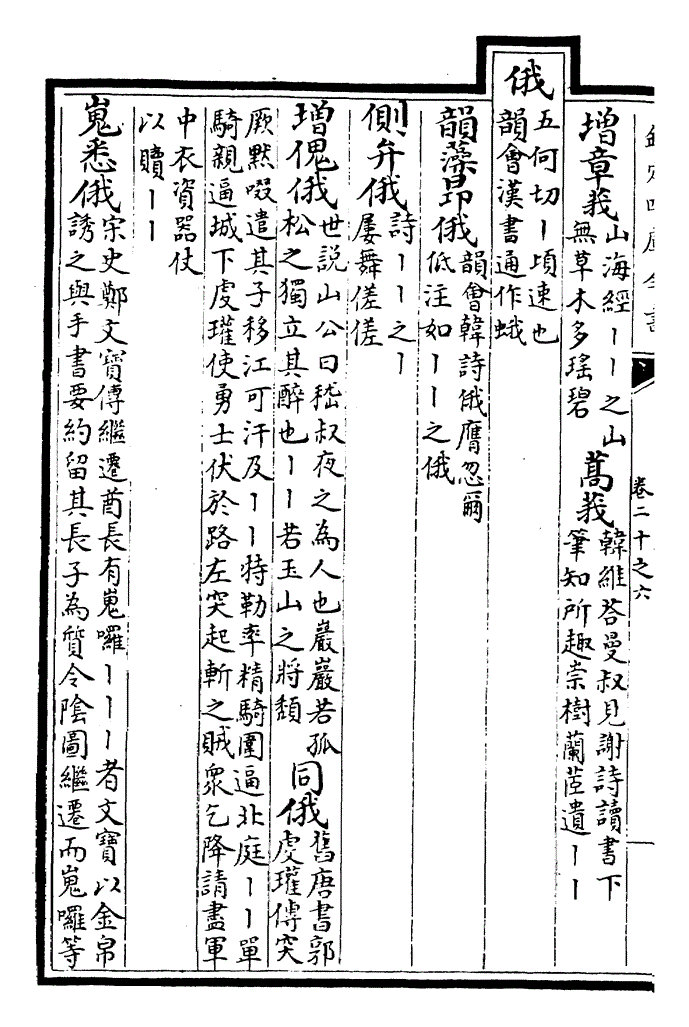 欽定四庫全書
卷二十之六
增章莪
山海經丨丨之山
無草木多瑤碧
蒿莪
韓維荅曼叔見謝詩讀書下
筆知所趣崇樹蘭茝遺丨丨
俄
五何切丨頃速也
韻會漢書通作蛾
韻藻昂俄
韻會韓詩俄膺忽爾
低注如丨丨之俄
側弁俄
詩丨丨之丨
屢舞傞傞
增傀俄
世說山公曰嵇叔夜之為人也巖巖若孤
松之獨立其醉也丨丨若玉山之將頹
同俄
舊唐書郭
虔瓘傳突
厥默啜遣其子移江可汗及丨丨特勒率精騎圍逼北庭丨丨單
騎親逼城下虔瓘使勇士伏於路左突起斬之賊衆乞降請盡軍
中衣資器仗
以贖丨丨
嵬悉俄
宋史鄭文寶傳繼遷酋長有嵬囉丨丨丨者文寶以金帛
誘之與手書要約留其長子為質令陰圖繼遷而嵬囉等